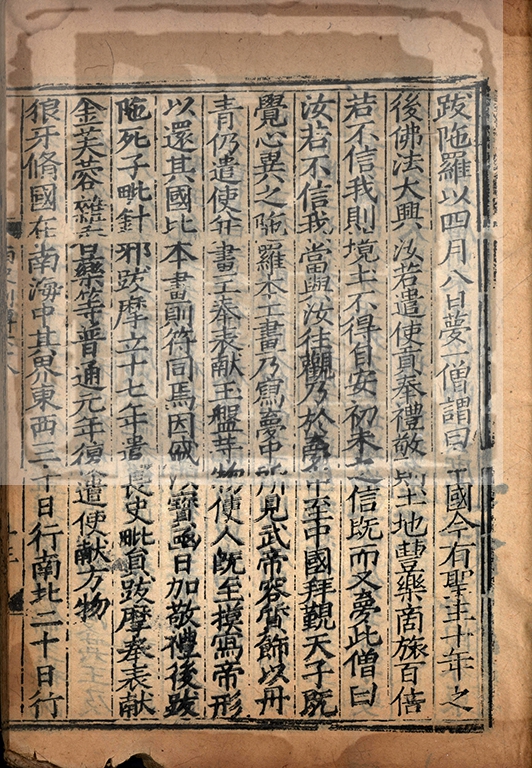 跋陁羅以四月八日夢一僧謂曰中國今有聖主十年之
後佛法大興汝若遣使貢奉禮敬則土地豐樂商旅百倍
若不信我則境土不得自安初未之信旣而又夢此僧曰
汝若不信我當與汝往觀乃於夢中至中國拜覲天子旣
覺心異之陁羅本工畫乃寫夢中所見武帝容質飾以丹
青仍遣使幷畫工奉表献玉盤等物使人旣至摸寫帝形
以還其國比本畫則符同焉因盛以寳函日加敬禮後跋
陁死子毗針邪跋摩立十七年遣長史毗貟跋摩奉表献
金芙蓉雜香藥等普通元年復遣使献方物
狼牙脩國在南海中其界東西三十日行南北二十日行